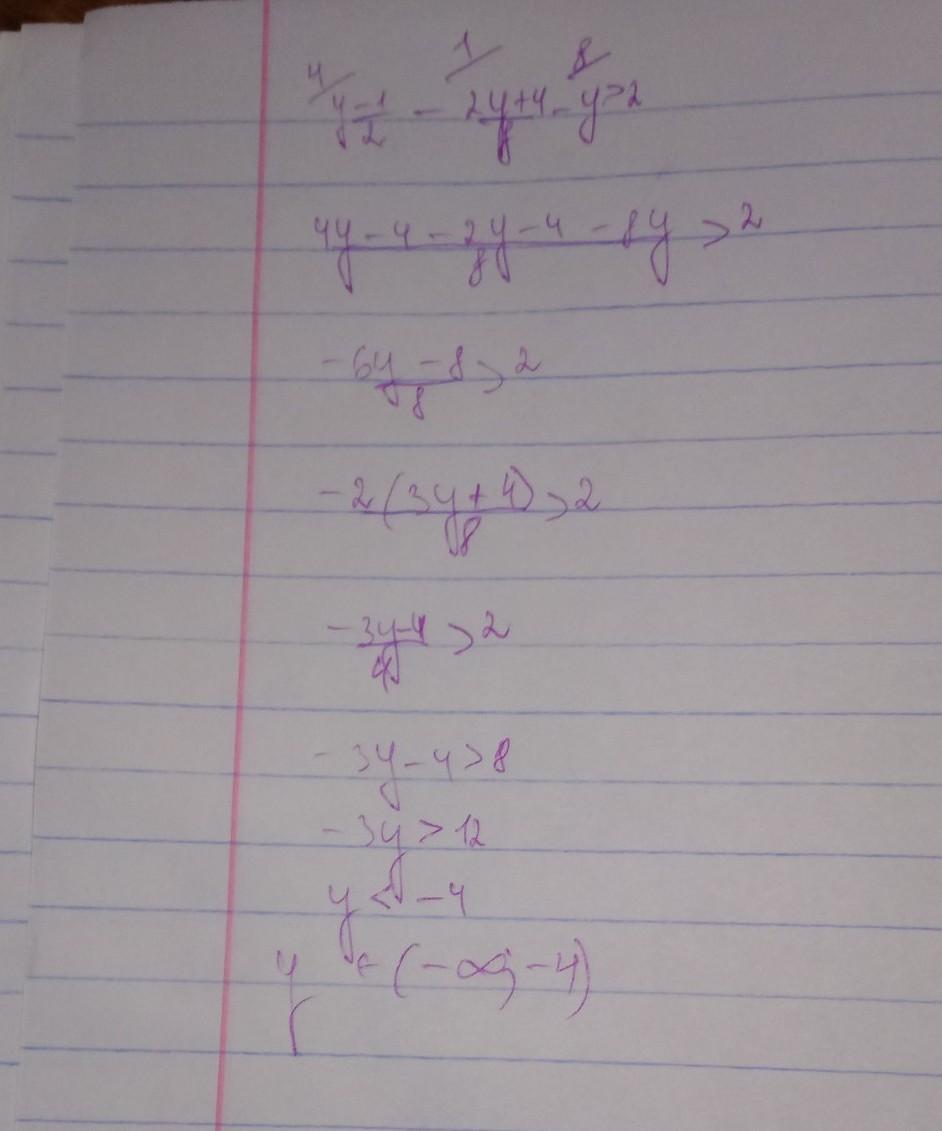 4/ 1/ 8/
y-1/2 - 2y+4/8 - y>2
4y-4-2y-4-8y/8 > 2
-6y-8/8 > 2
-2(3y+4)/8 > 2
-3y-4/4 > 2
-3y-4>8
-3y>12
y<-4
y ∈ (-∞; -4)